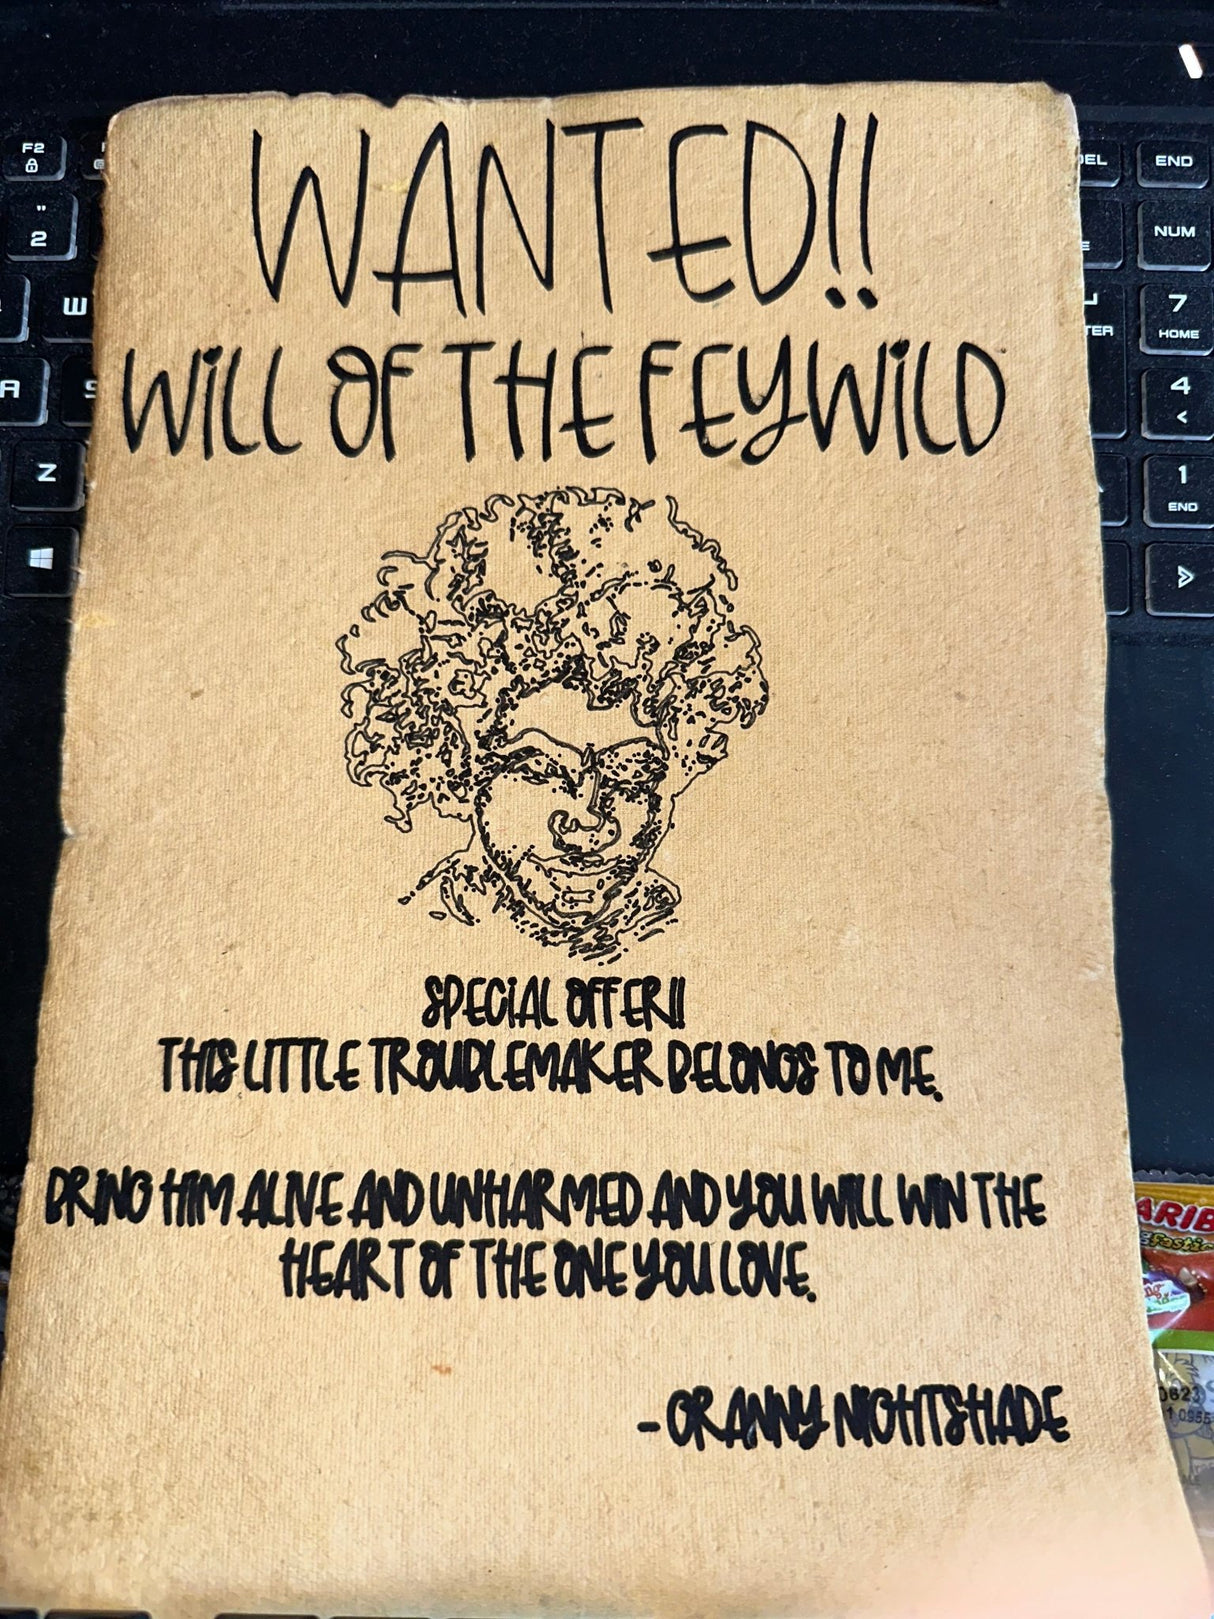 WANTED!!
WiLL OF THE FEYWiLD
SPECiAL OFFER!!
THIS LITTLE TROUBLEMAKER BELONGS TO ME.
BRiNG HIM ALIVE AND UNHARMED AND YOU WILL WIN THE
HEART OF THE ONE YOU LOVE.
- GRANNY NIGHTSHADE
F2
"
2
W
A
S
Z
DEL
END
NUM
7
HOME
4
<
1
END
ARIB